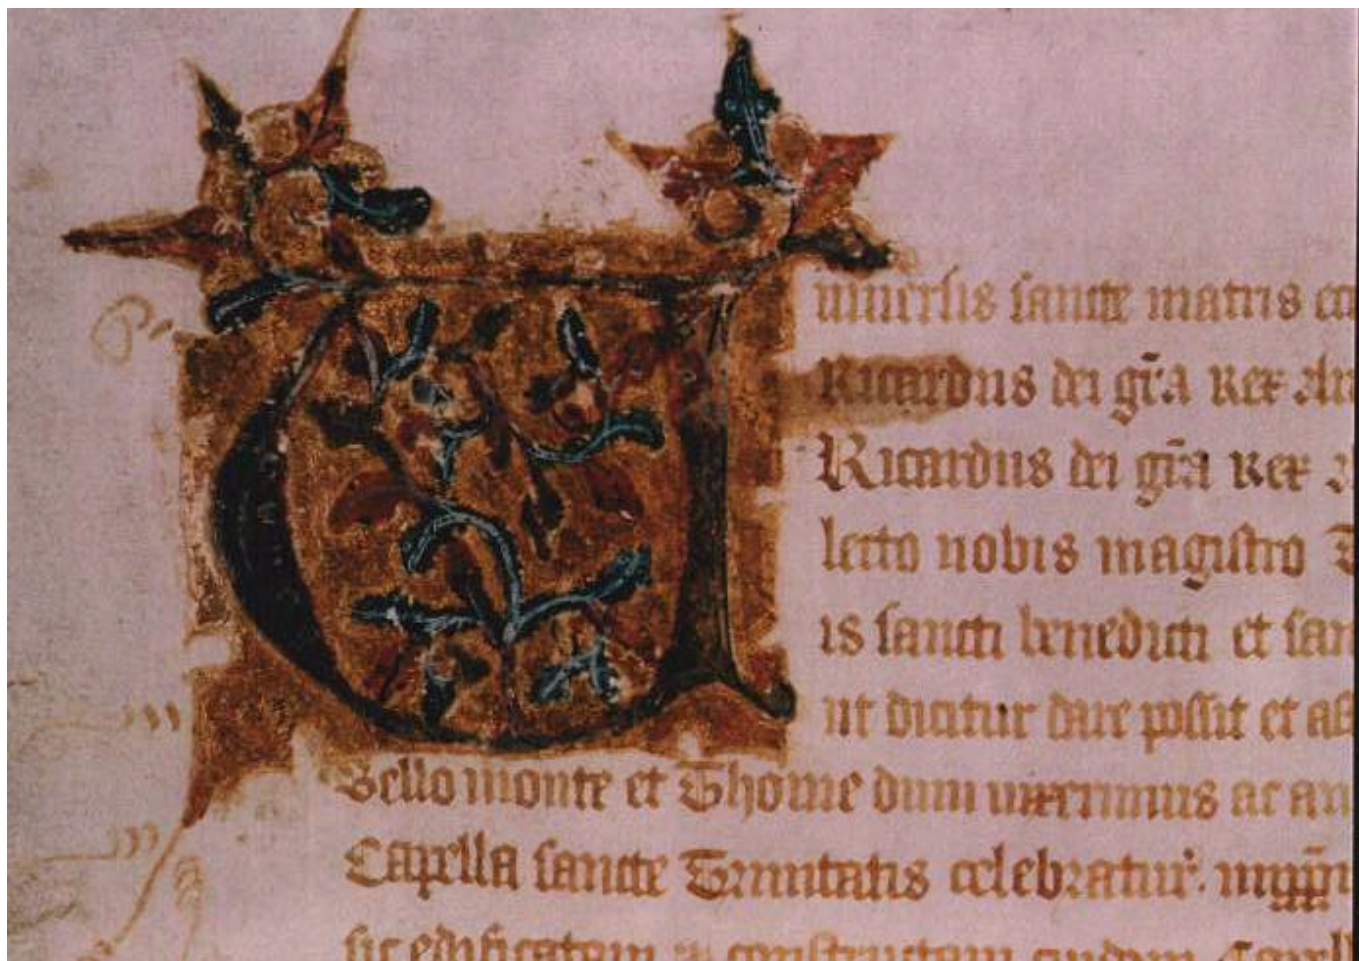 Uniuersis sancte matris
Ricardus dei gr̃a Rex An
Ricardus dei gr̃a Rex
lecto nobis magistro
is sancti benedicti et san
ut dicitur dare possit et as
Bello monte et Thome dum uixerimus ac an
Capella sancte Trinitatis celebratur.
sic edificatam constructam